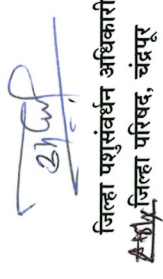 जिल्हा पशुसंवर्धन अधिकारी
जिल्हा परिषद, चंद्रपूर